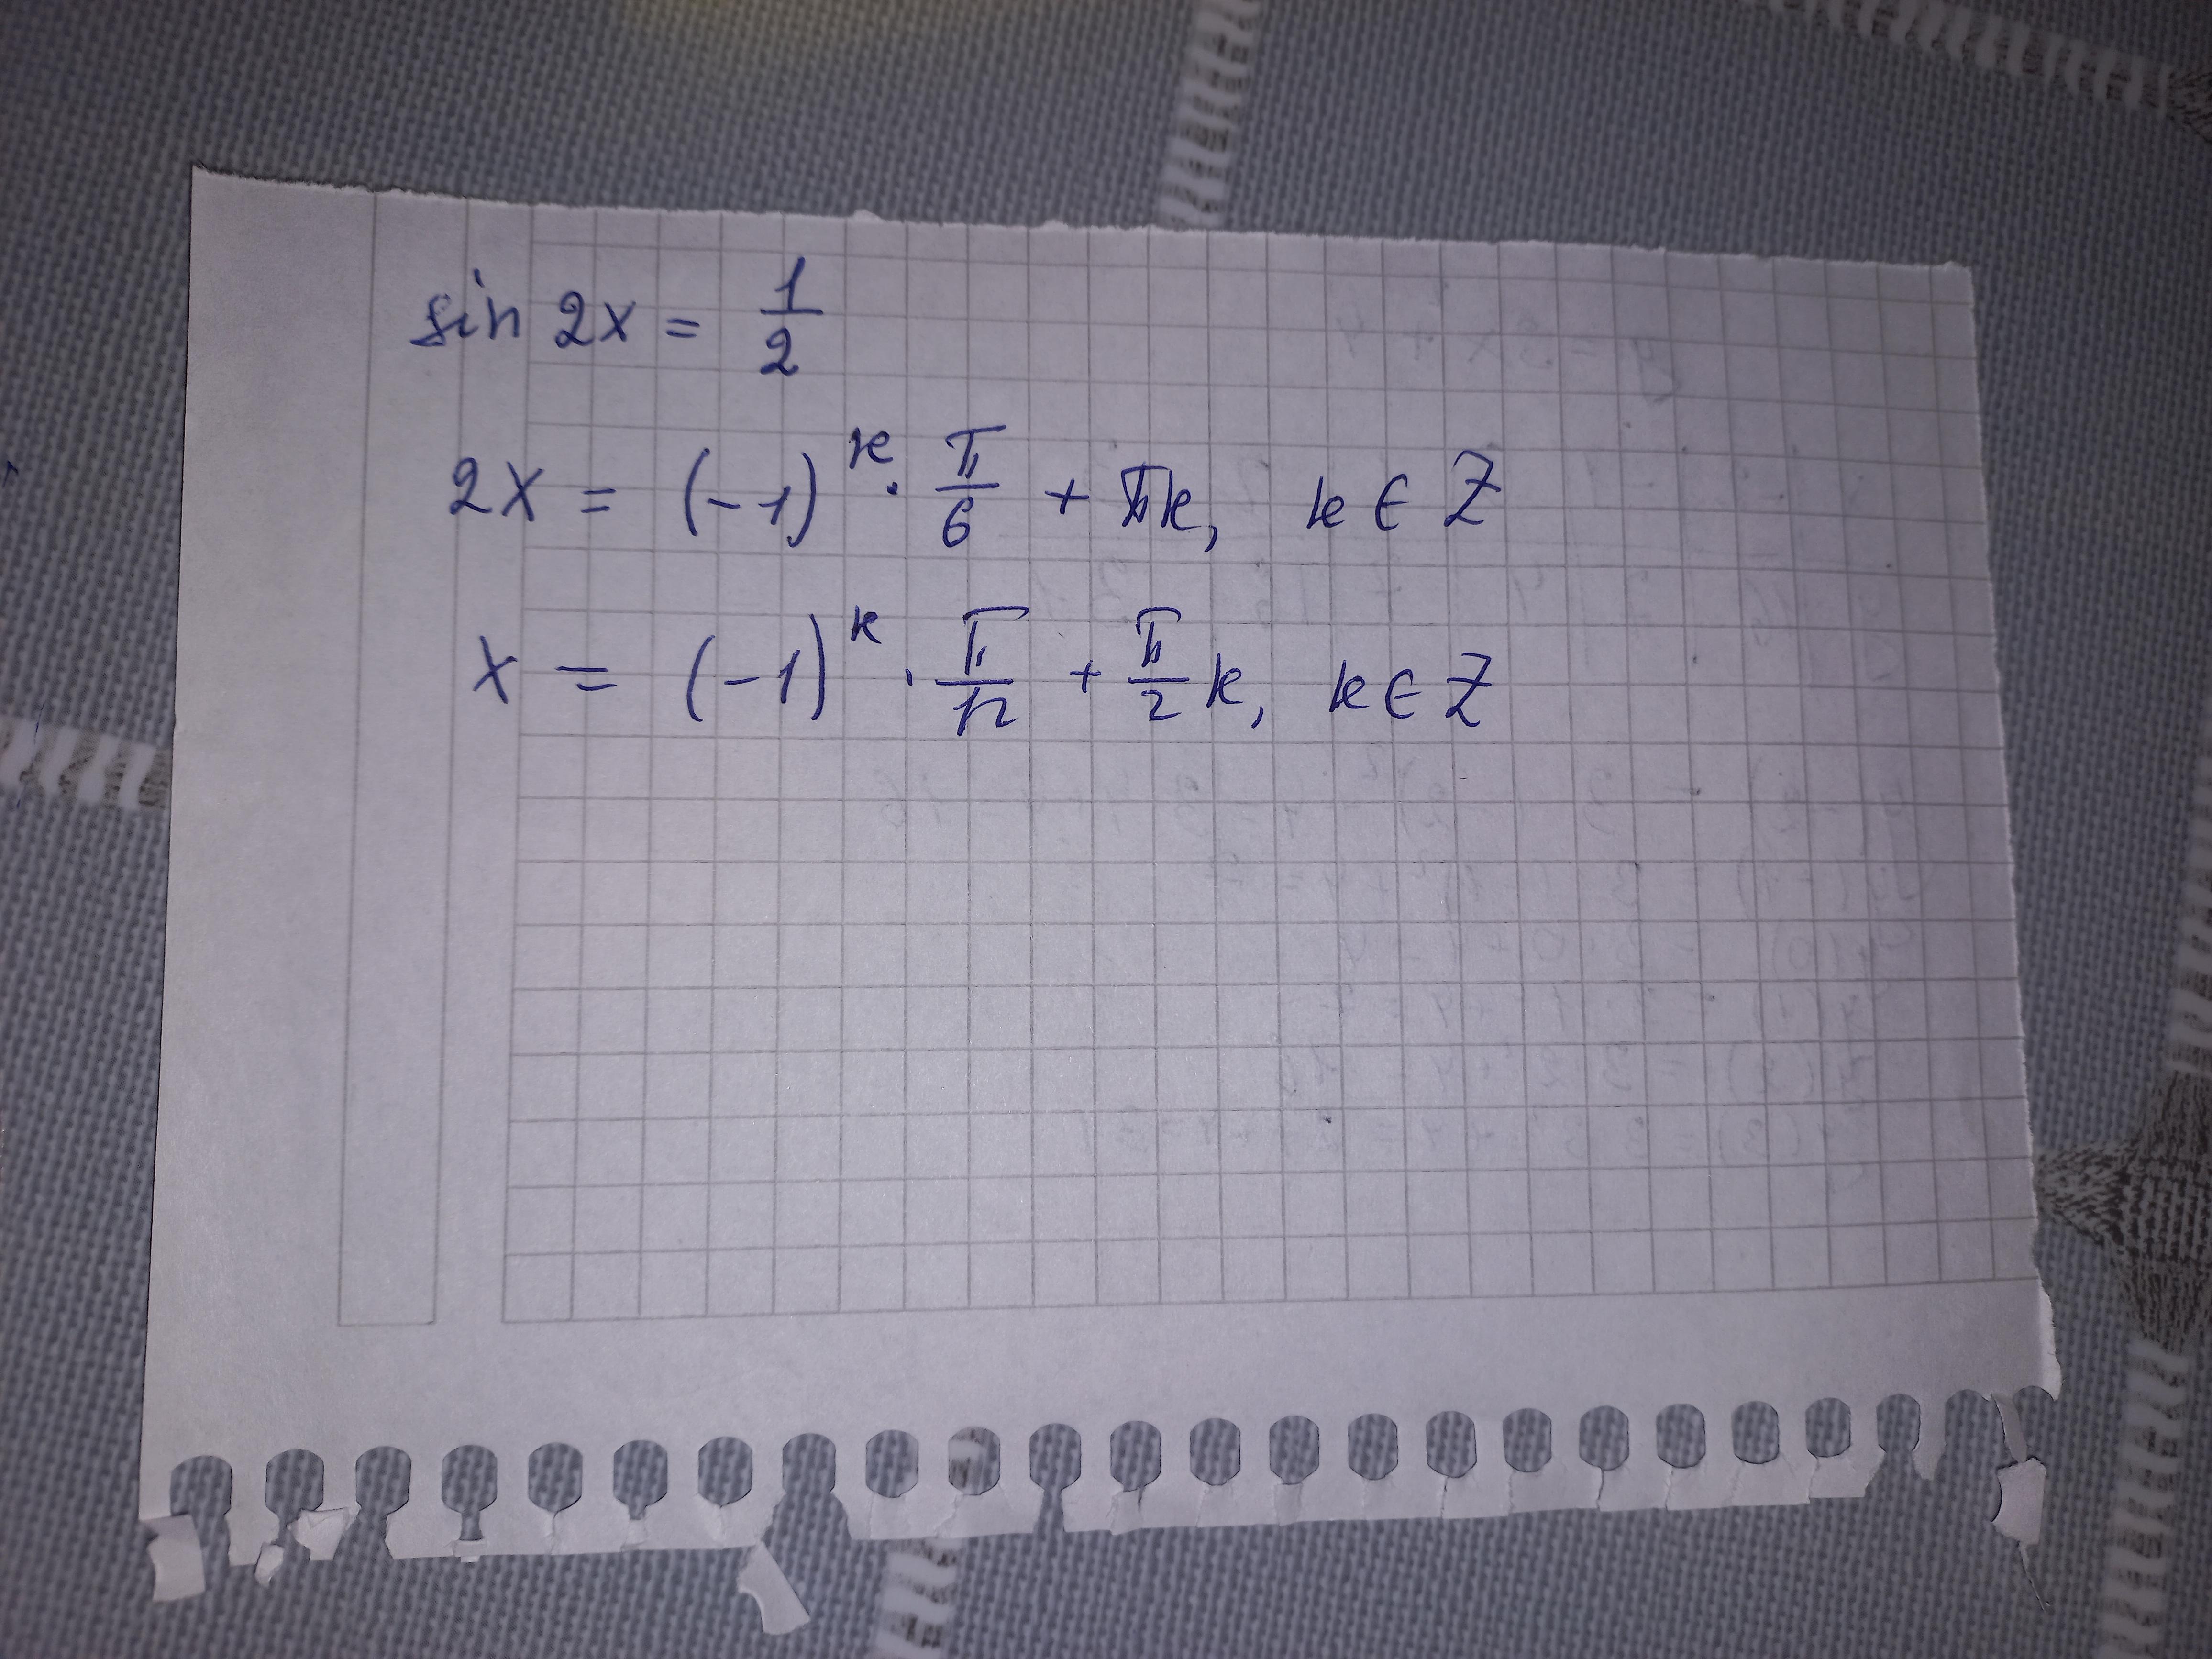 sin 2x = 1/2
2x = (-1)^k · π/6 + πk, k ∈ Z
x = (-1)^k · π/12 + π/2 k, k ∈ Z